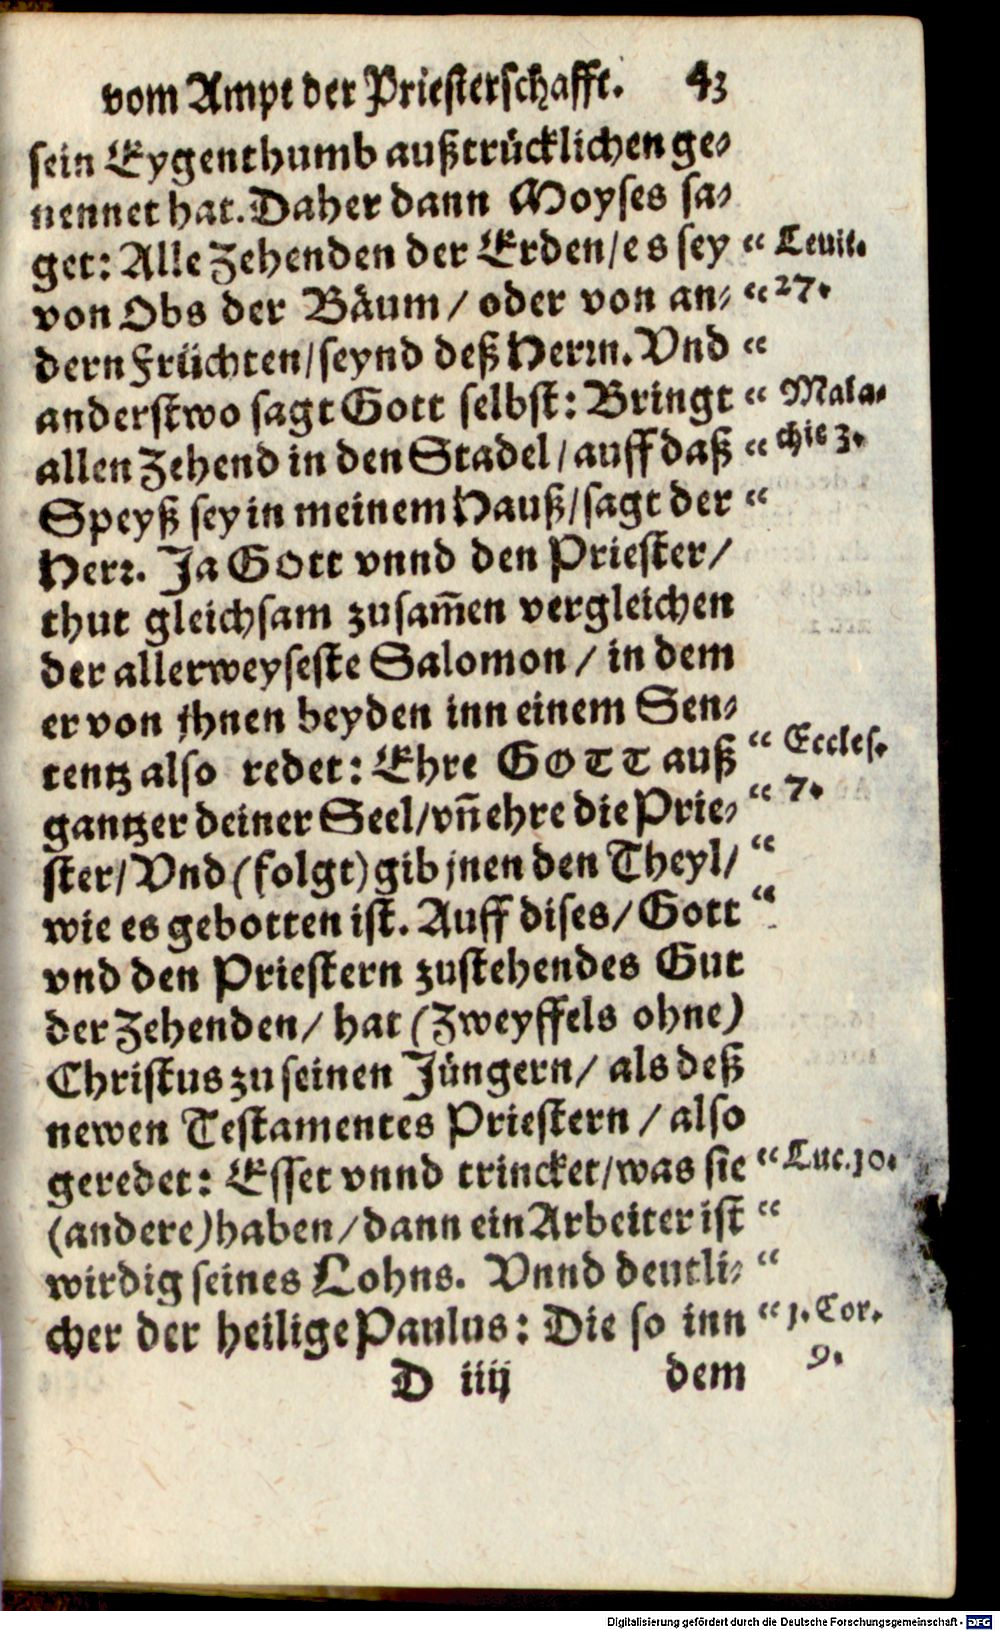 vom Ampt der Priesterschafft. 43
sein Eygenthumb außtrücklichen ge⸗
nennet hat. Daher dann Moyses sa⸗
get: Alle Zehenden der Erden/es sey “ Leuit.
von Obs der Bäum/ oder von an⸗ “ 27.
dern Früchten/seynd deß Herrn. Vnd “
anderstwo sagt Gott selbst: Bringt “ Mala⸗
allen Zehend in den Stadel/auff daß “ chie 3.
Speyß sey in meinem Hauß/sagt der “
Herr. Ja GOtt vnnd den Priester/
thut gleichsam zusam̄en vergleichen
der allerweyseste Salomon/ in dem
er von jhnen beyden inn einem Sen⸗
tentz also redet: Ehre GOTT auß “ Eccles.
gantzer deiner Seel/vn̄ ehre die Prie⸗ “ 7.
ster/Vnd (folgt) gib jnen den Theyl/ “
wie es gebotten ist. Auff dises/ Gott “
vnd den Priestern zustehendes Gut
der Zehenden/ hat (Zweyffels ohne)
Christus zu seinen Jüngern/ als deß
newen Testamentes Priestern/ also
geredet: Esset vnnd trincket/was sie “ Luc. 10.
(andere) haben/dann ein Arbeiter ist “
wirdig seines Lohns. Vnnd deutli⸗ “
cher der heilige Paulus: Die so inn “ 1. Cor.
9.
D iiij dem
Digitalisierung gefördert durch die Deutsche Forschungsgemeinschaft - DFG